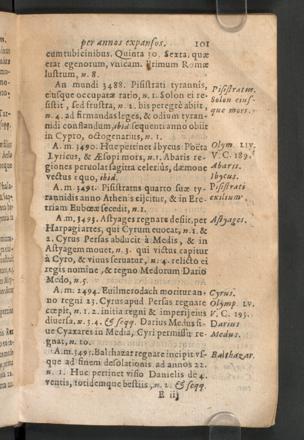 per annos expansos. 101
cumtubicinibus. Quinta 30. Sexta, quæ
erat egenorum, vnicam. Primum Romæ
lustrum, n. 8.
An mundi 3488. Pisistrati tyrannis,
eiusque occupatæ ratio, n. 1. Solon ei re-
sistit, sed frustra, n. 2. bis peregrè abiit,
n. 4. ad firmandas leges, & odium tyran-
nidi conflandum, ibid. sequenti anno obit
in Cypro, octogenarius, n. 1.
Pisistratus.
Solon eius-
que mors.
A. m. 3490. Huc pertinet Ibycus Poëta
Lyricus, & Æsopi mors, n. 1. Abaris re-
giones peruolat sagitta celeriùs, dæmone
vectus equo, ibid.
Olym. LIV.
V. C. 189.
Abaris.
Ibycus.
A. m. 3491. Pisistratus quarto suæ ty-
rannidis anno Athenis eijcitur, & in Ere-
triam Eubœæ secedit, n. 1.
Pisistrati
exilium.
A. m. 3493. Astyages regnare desiit, per
Harpagi artes, qui Cyrum euocat, n. 1. &
2. Cyrus Persas abducit à Medis, & in
Astyagem mouet, n. 3. qui victus capitur
à Cyro, & viuus seruatur, n. 4. relicto ei
regno nomine, & regno Medorum Dario
Medo, n. 5.
Astyages.
A. m. 2494. Euilmerodach moritur an-
no regni 23. Cyrus apud Persas regnare
cœpit, n. 1. 2. initia regni & imperij eius
diuersa, n. 3. 4. & seqq. Darius Medus si-
ue Cyaxares in Media, Cyri permissu re-
gnat, n. 10.
Cyrus.
Olymp. LV.
V. C. 193.
Darius
Medus.
A. m. 3495. Balthazar regnare incipit vs-
que ad finem desolationis ad annos 22.
n. 1. Huc pertinet visio Danielis de 4.
ventis, totidemque bestiis, n. 2. & seqq.
Balthazar.
E iij